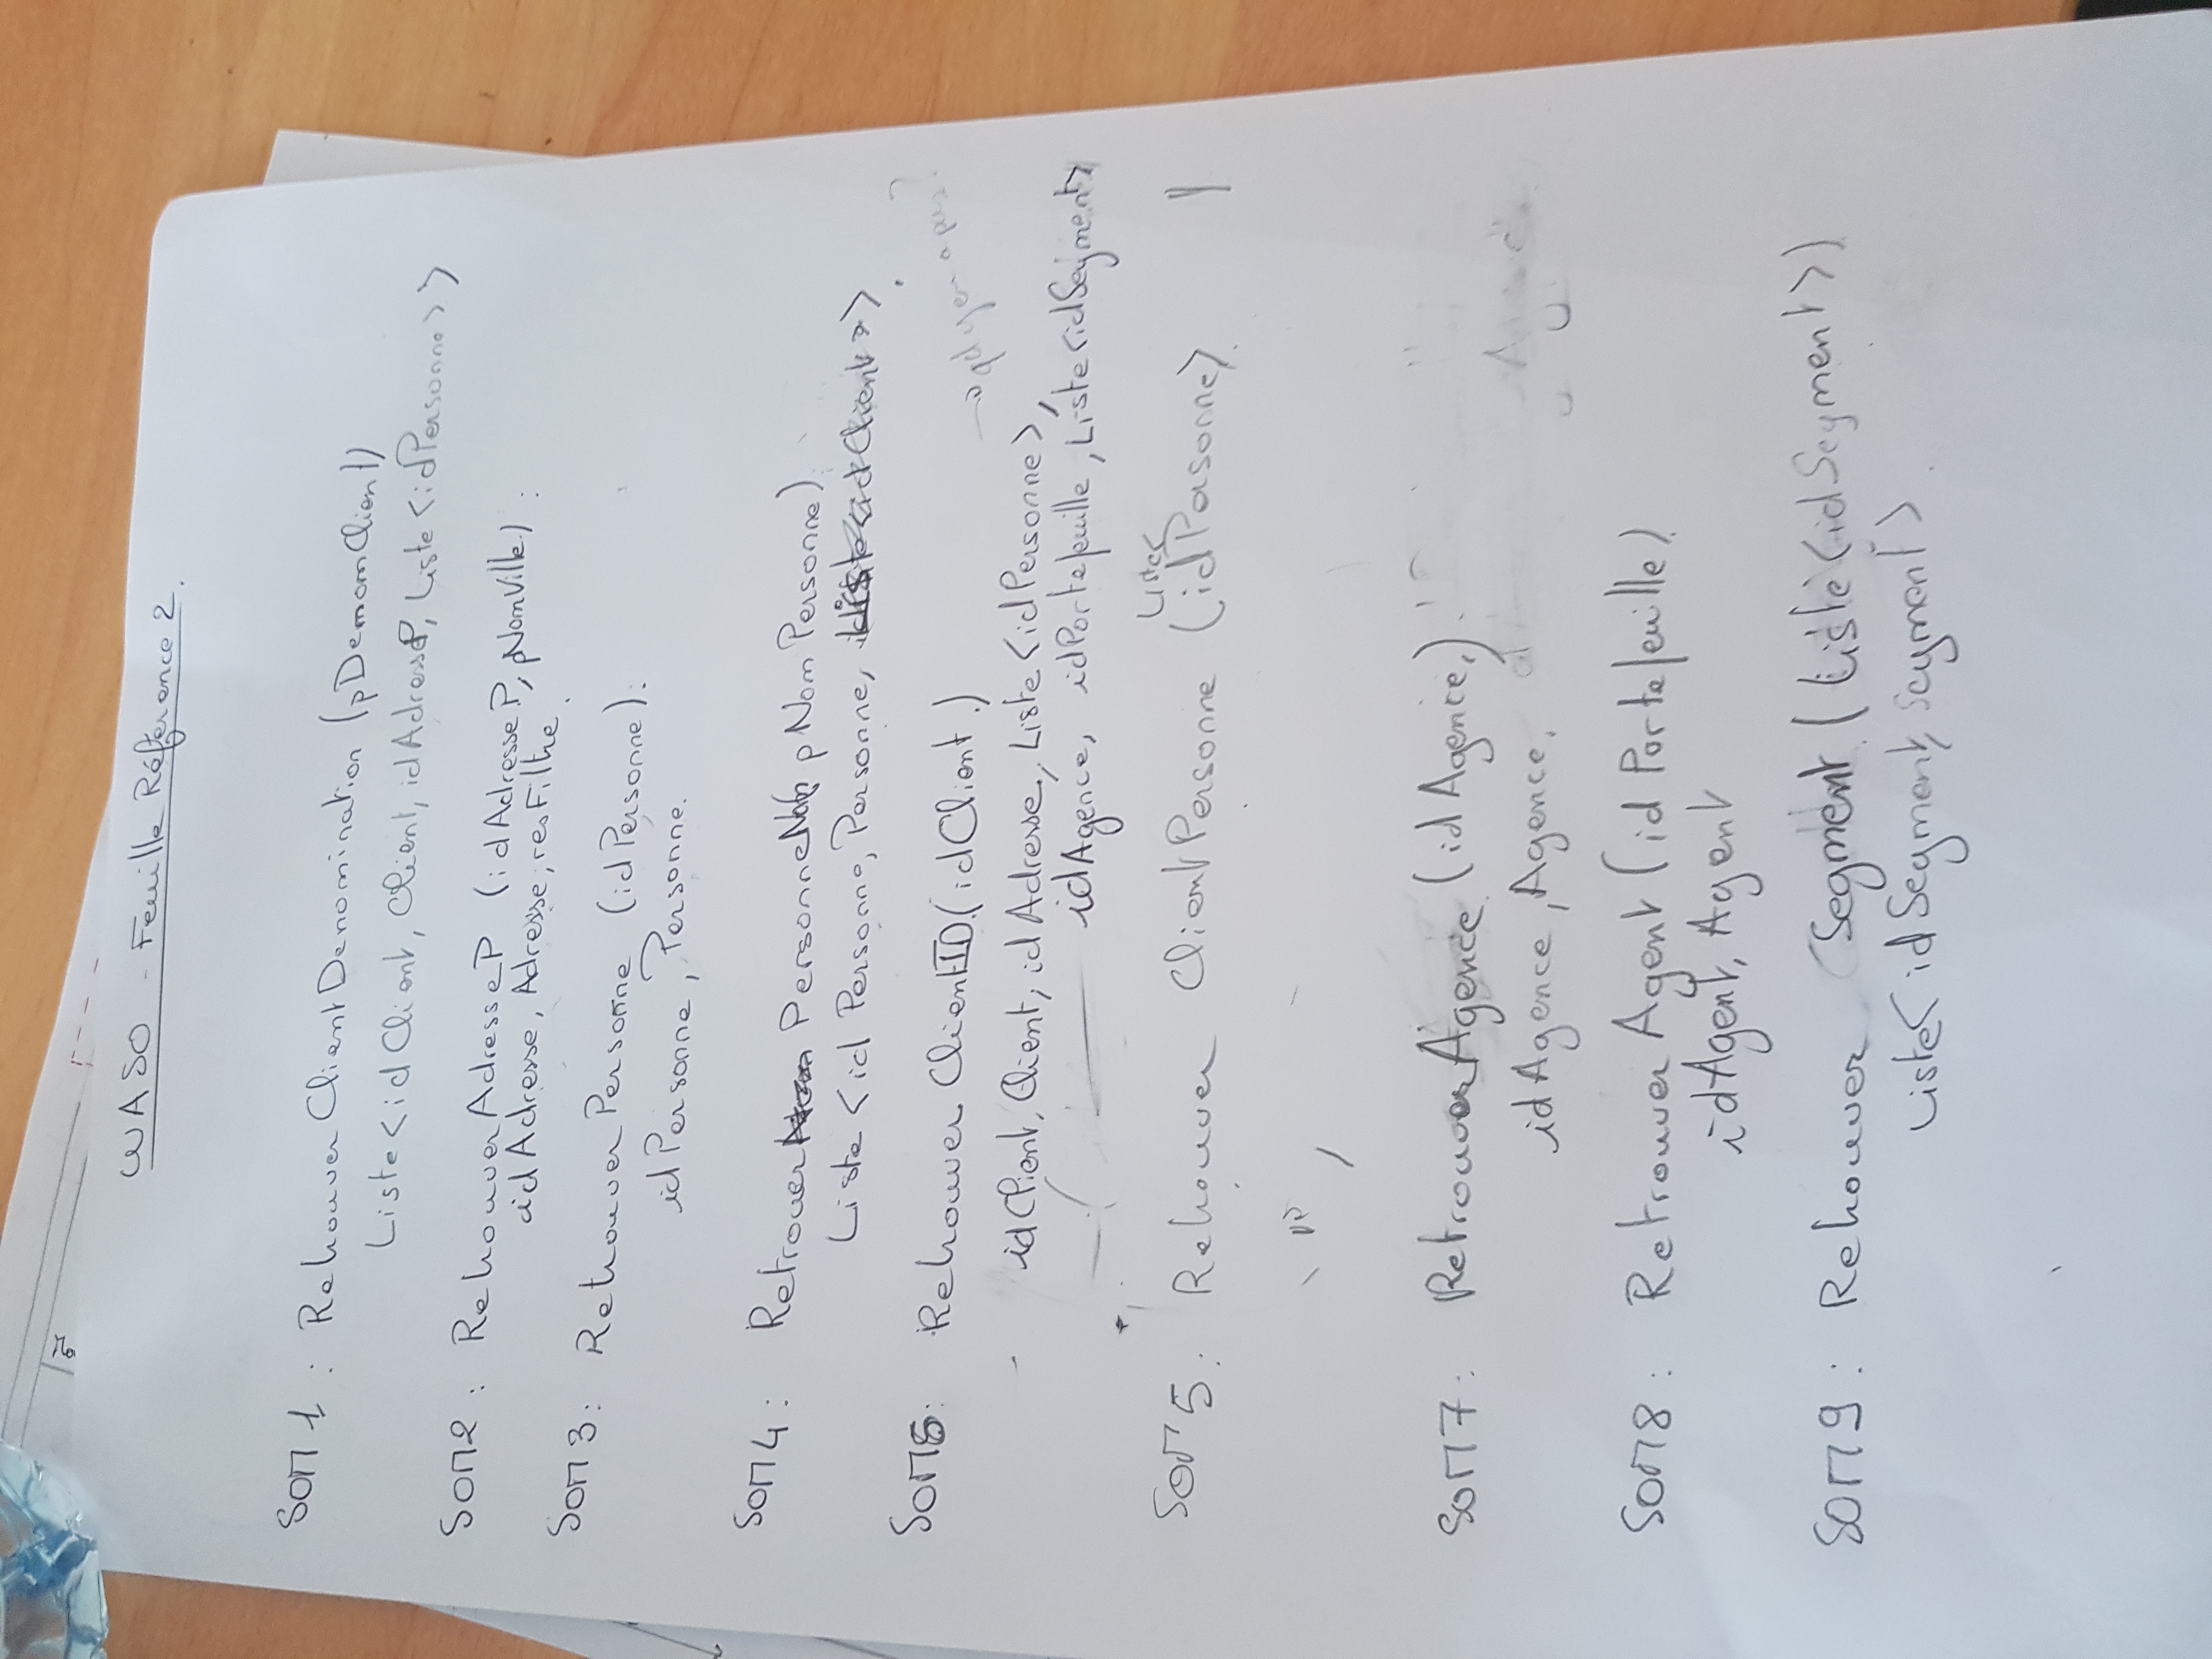 WASO - Feuille Référence 2.
SOM1 : RetrouverClientDenomination (pDenomClient)
Liste<idClient, Client, idAdresseP, Liste<idPersonne>>
SOM2 : RetrouverAdresseP (idAdresseP, pNomVille) :
idAdresse, Adresse, resFiltre.
SOM3 : RetrouverPersonne (idPersonne) :
idPersonne, Personne.
SOM4 : Retrouver PersonneNom( pNomPersonne) :
Liste <idPersonne, Personne, Liste<idClient>>.
SOM6 : Retrouver ClientID (idClient)
→ qd y en a pas?
idClient, Client, idAdresse, Liste<idPersonne>,
idAgence, idPortefeuille, Liste<idSegment>
SOM5 : Retrouver ClientPersonne (Liste<idPersonne>)
SOM7 : RetrouverAgence (idAgence) :
idAgence, Agence.
SOM8 : Retrouver Agent (idPortefeuille)
idAgent, Agent
SOM9 : Retrouver Segment (Liste<idSegment>)
Liste<idSegment, segment>